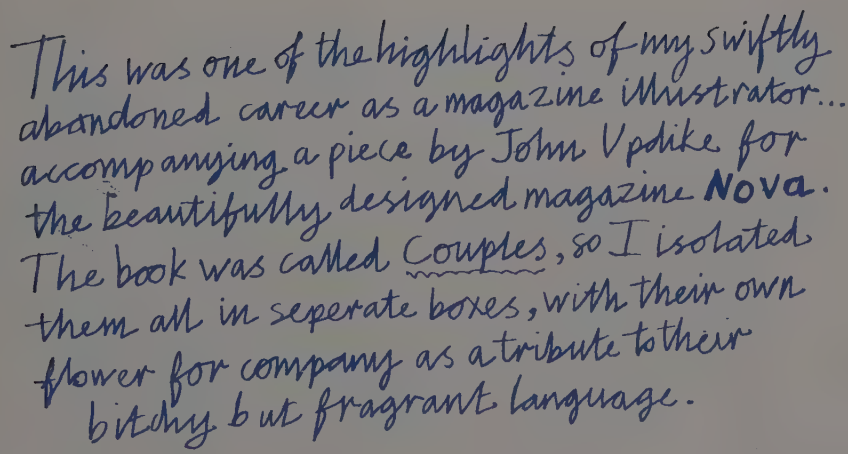 This was one of the highlights of my swiftly
abandoned career as a magazine illustrator...
accompanying a piece by John Updike for
the beautifully designed magazine Nova.
The book was called Couples, so I isolated
them all in seperate boxes, with their own
flower for company as a tribute to their
bitchy but fragrant language.